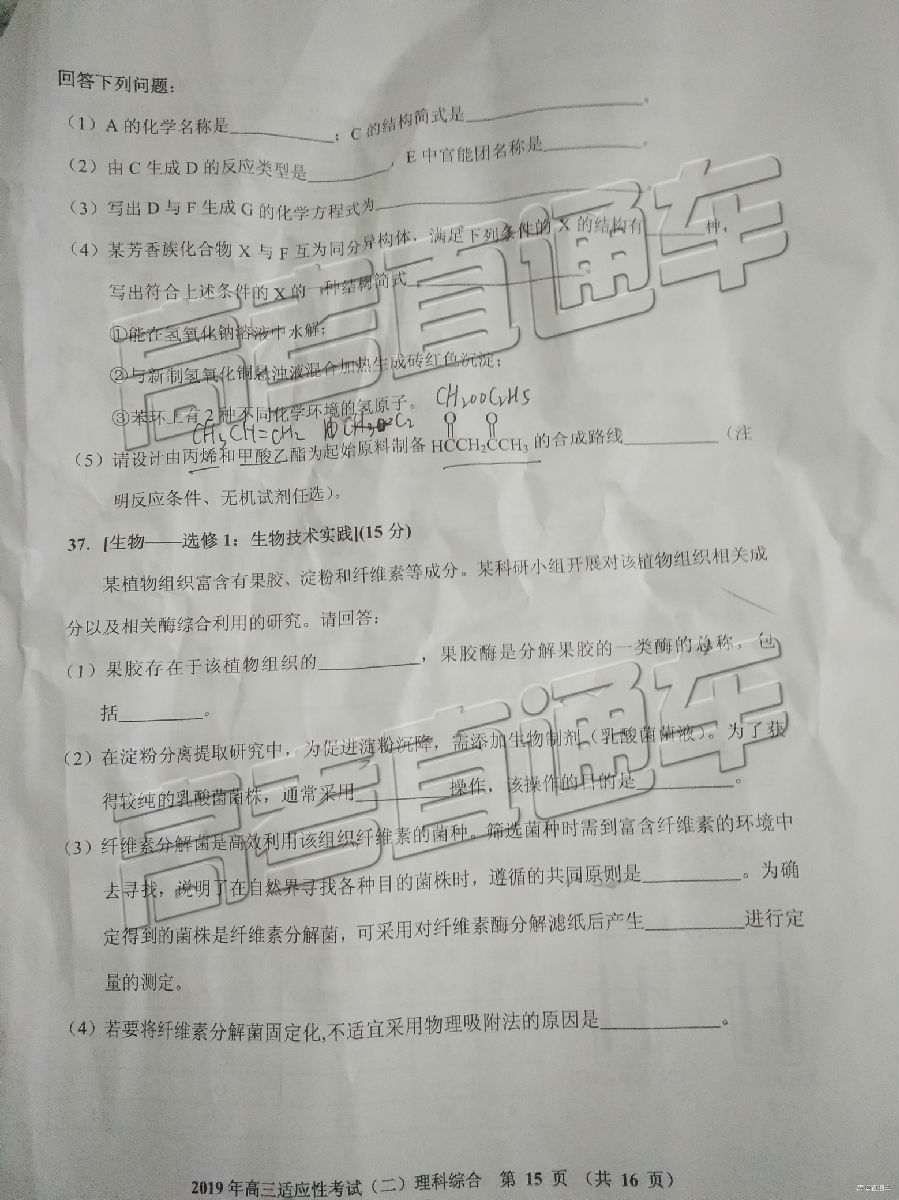 回答下列问题：
（1）A 的化学名称是__________；C 的结构简式是__________。
（2）由 C 生成 D 的反应类型是________，E 中官能团名称是__________。
（3）写出 D 与 F 生成 G 的化学方程式为__________。
（4）某芳香族化合物 X 与 F 互为同分异构体，满足下列条件的 X 的结构有______种，
写出符合上述条件的 X 的一种结构简式__________。
①能在氢氧化钠溶液中水解；
②与新制氢氧化铜悬浊液混合加热生成砖红色沉淀；
③苯环上有 2 种不同化学环境的氢原子。 CH2OOC2H5
CH3CH=CH2
（5）请设计由丙烯和甲酸乙酯为起始原料制备 HCCH2CCH3 的合成路线__________（注
O O
明反应条件、无机试剂任选）。
37. [生物——选修 1：生物技术实践](15 分)
某植物组织富含有果胶、淀粉和纤维素等成分。某科研小组开展对该植物组织相关成
分以及相关酶综合利用的研究。请回答：
（1）果胶存在于该植物组织的__________，果胶酶是分解果胶的一类酶的总称，包
括________。
（2）在淀粉分离提取研究中，为促进淀粉沉降，需添加生物制剂（乳酸菌菌液）。为了获
得较纯的乳酸菌菌株，通常采用__________操作，该操作的目的是__________。
（3）纤维素分解菌是高效利用该组织纤维素的菌种。筛选菌种时需到富含纤维素的环境中
去寻找，说明了在自然界寻找各种目的菌株时，遵循的共同原则是__________。为确
定得到的菌株是纤维素分解菌，可采用对纤维素酶分解滤纸后产生__________进行定
量的测定。
（4）若要将纤维素分解菌固定化,不适宜采用物理吸附法的原因是____________。
2019 年高三适应性考试（二）理科综合 第 15 页 （共 16 页）
高考直通车
高考直通车